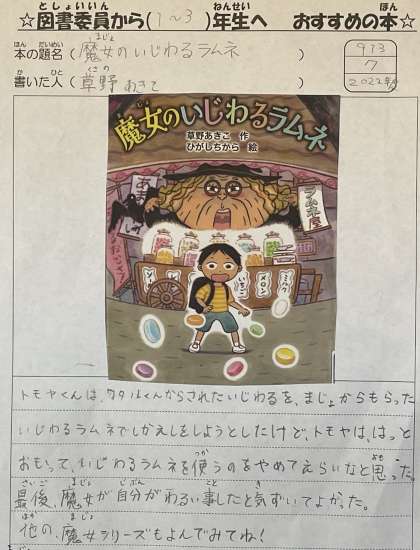 ☆図書委員から(1〜3)年生へ おすすめの本☆
本の題名(魔女のいじわるラムネ)
書いた人(草野あきこ)
913
7
2022年
魔女のいじわるラムネ
草野あきこ 作
ひがしちから 絵
ラムネ屋
いちご
メロン
ミルク
トモヤくんは、ワタルくんからされたいじわるを、まじょからもらった
いじわるラムネでしかえしをしようとしたけど、トモヤは、はっと
おもって、いじわるラムネを使うのをやめてえらいなと思った。
最後、魔女が自分がわるい事したと気ずいてよかった。
他の、魔女シリーズもよんでみてね!